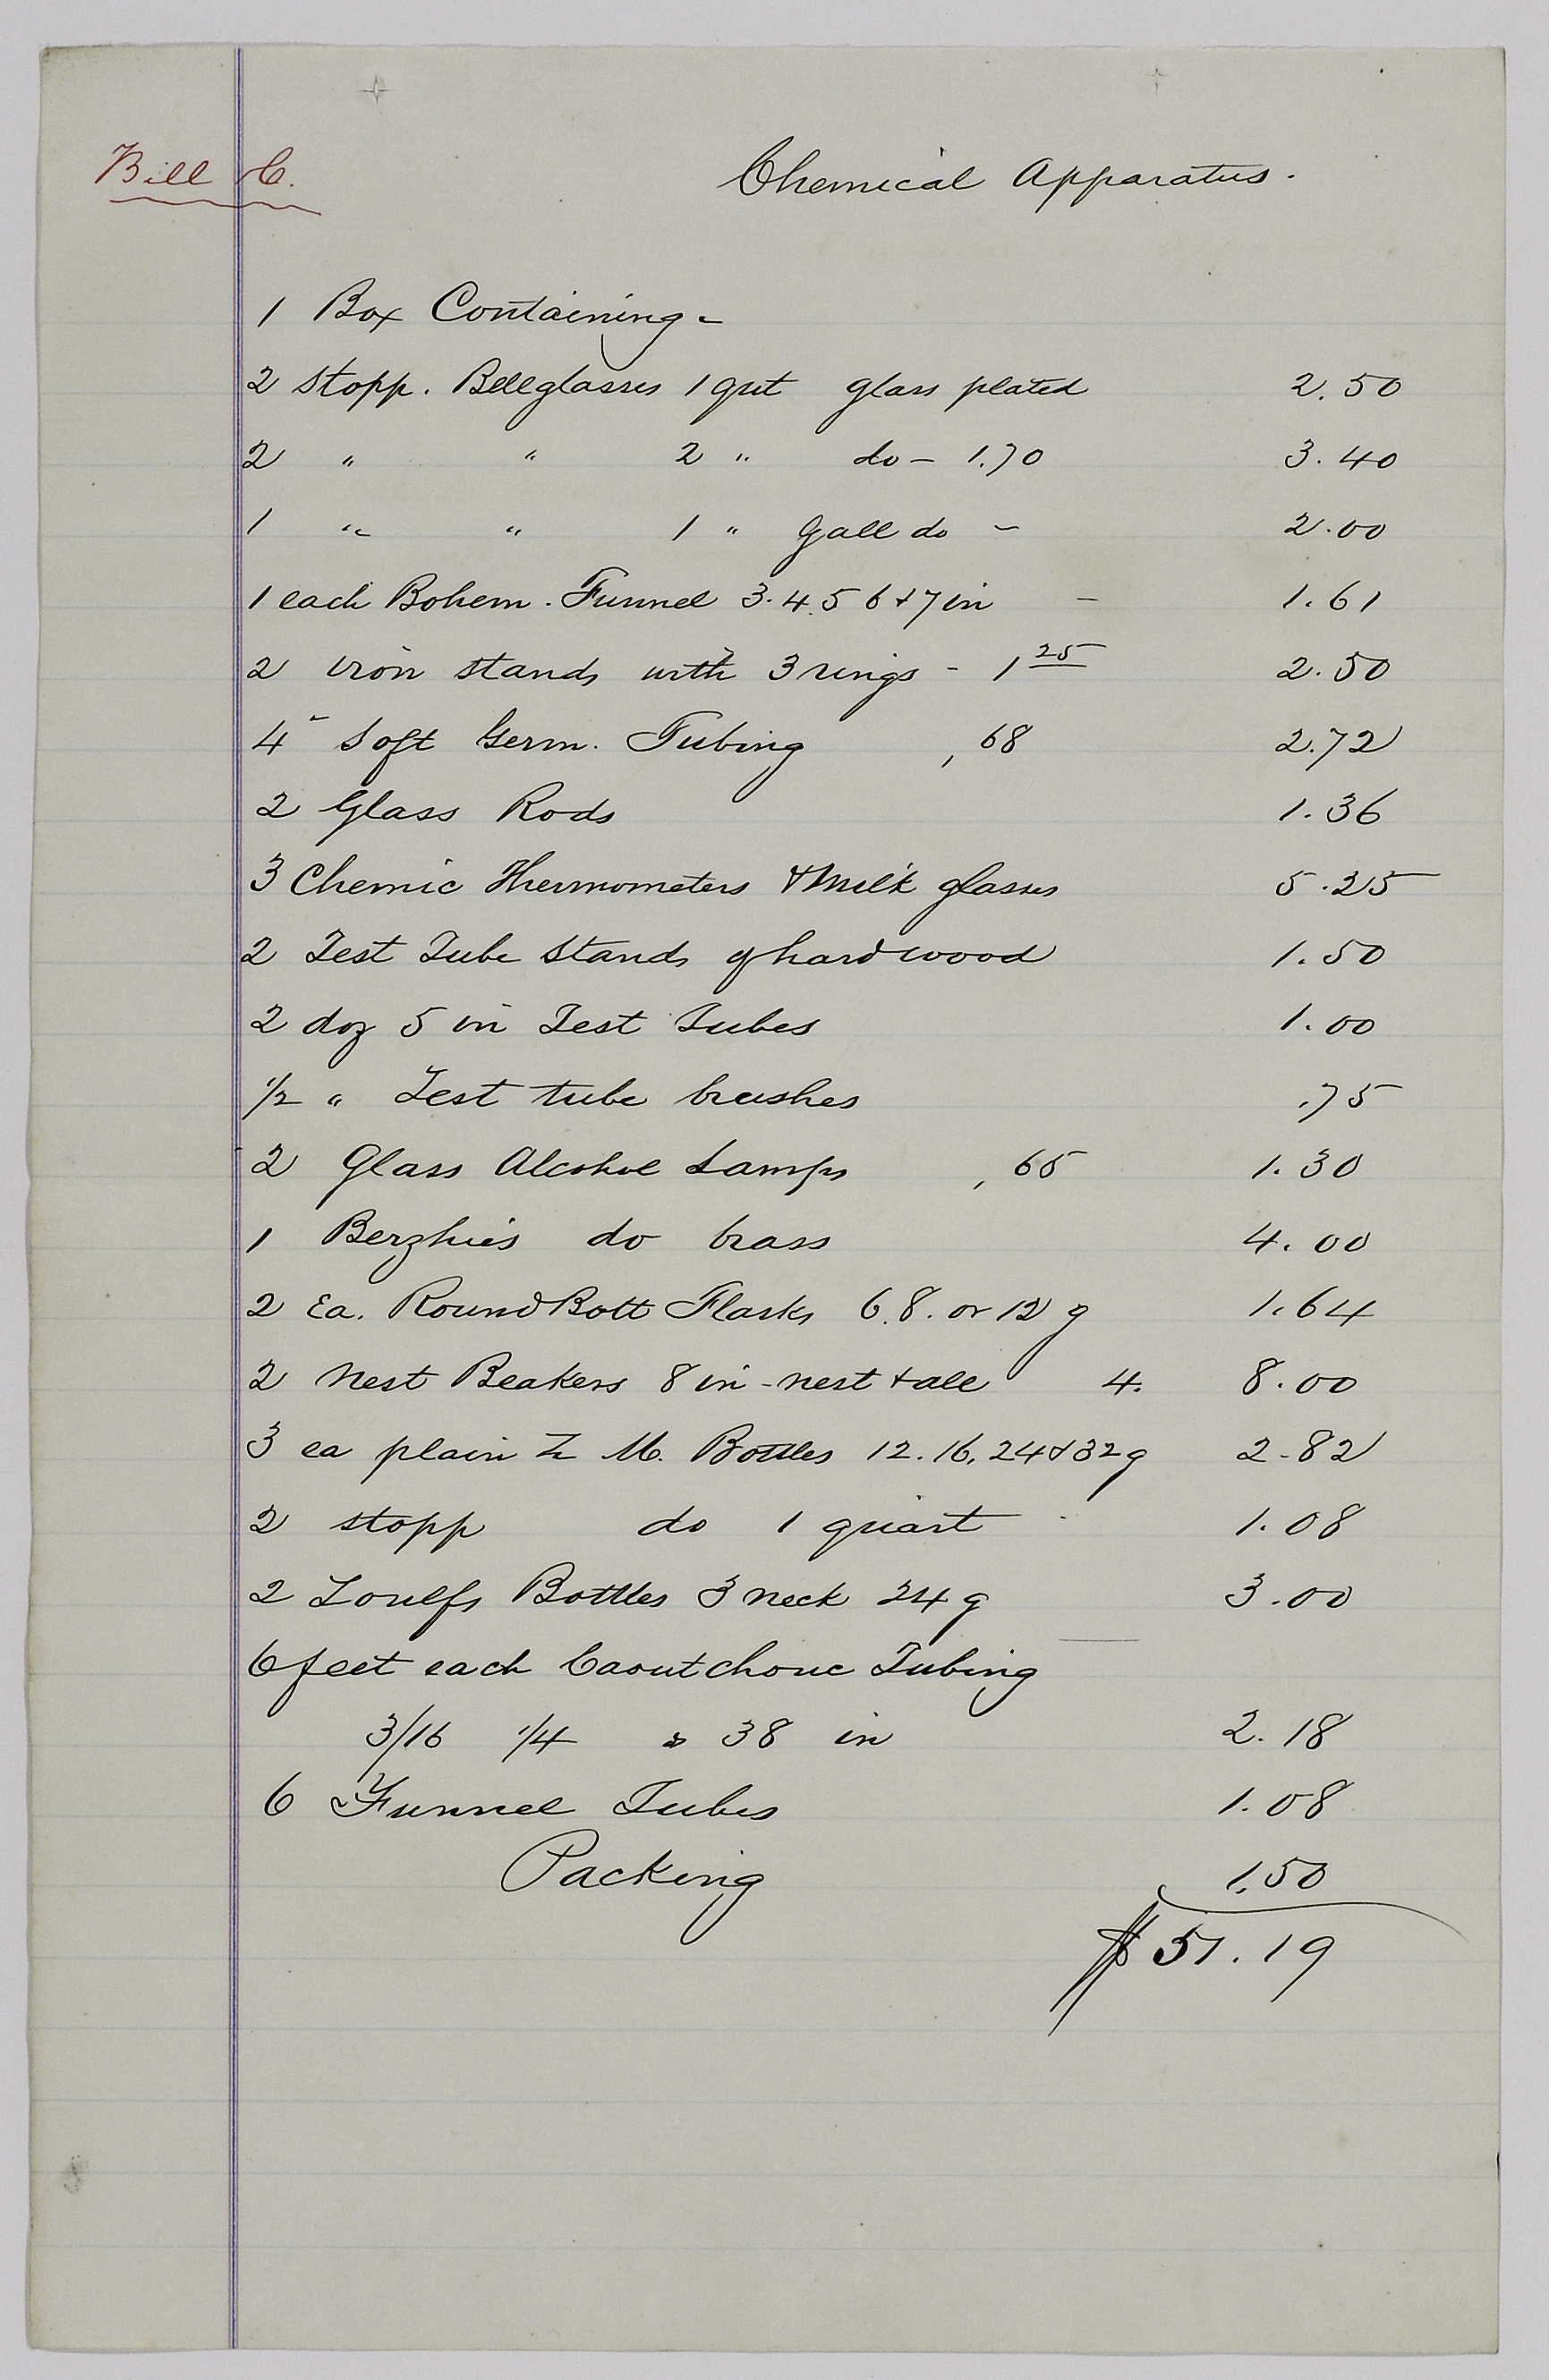 Bill C.
Chemical Apparatus.
1 Box Containing -
2 Stopp. Bellglasses 1 qrt glass plated 2.50
2 " " 2 " do - 1.70 3.40
1 " " 1 " Gall do - 2.00
1 each Bohem. Funnel 3.4.5 6 & 7 in - 1.61
2 iron stands with 3 rings - 1 25 2.50
4 Soft Germ. Tubing , 68 2.72
2 Glass Rods 1.36
3 Chemic Thermometers & Milk glasses 5.25
2 Test Tube Stands of hard wood 1.50
2 doz 5 in Test Tubes 1.00
1/2 " Test tube brushes .75
2 Glass Alcohol Lamps , 65 1.30
1 do brass 4.00
2 Ea. Round Bott Flasks 6.8. or 12 g 1.64
2 Nest Beakers 8 in - nest 4. 8.00
3 ea plain M. Bottles 12.16.24 & 32 g 2-82
2 stopp do 1 quart 1.08
2 Bottles 3 neck 24 g 3.00
6 feet each Caoutchouc Tubing
3/16 1/4 38 in 2.18
6 Funnel Tubes 1.08
Packing 1.50
$ 51.19